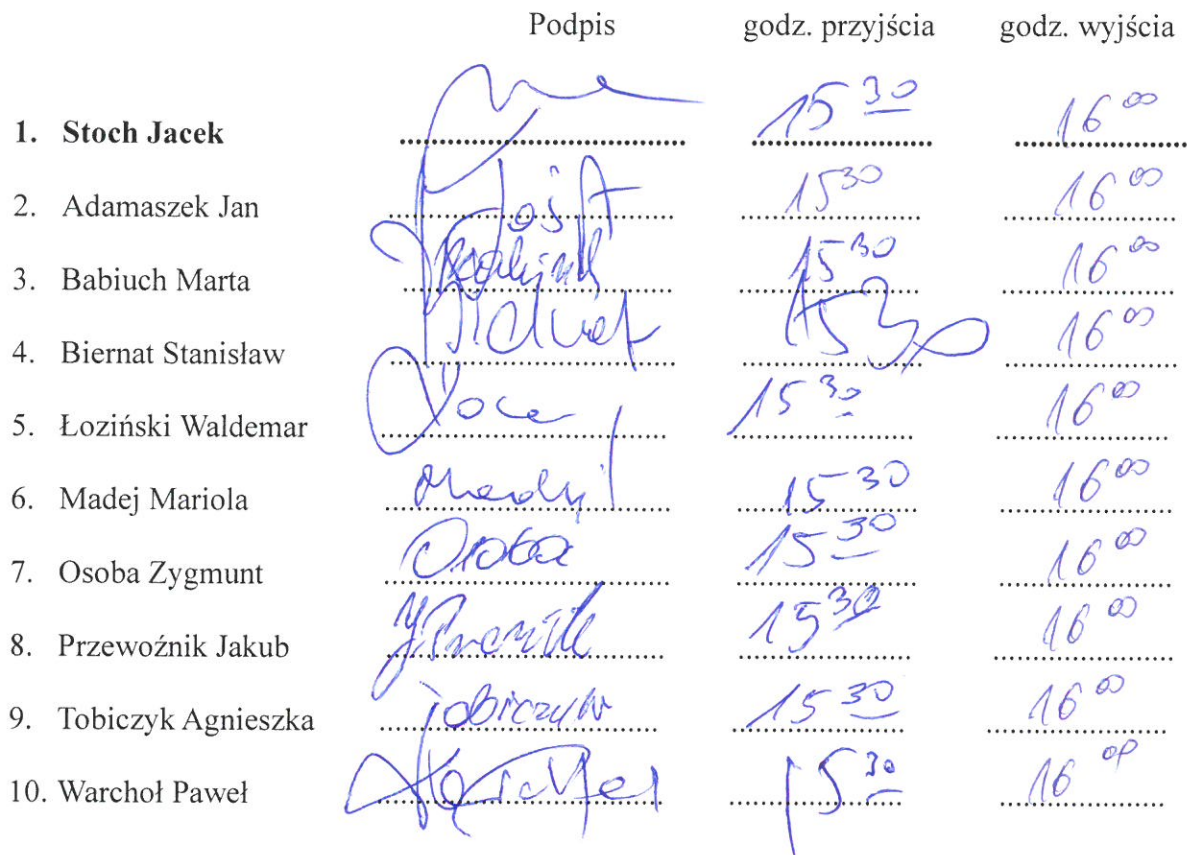 Podpis godz. przyjścia godz. wyjścia
1. Stoch Jacek 15 30 16 00
2. Adamaszek Jan 15 30 16 00
3. Babiuch Marta 15 30 16 00
4. Biernat Stanisław 15 30 16 00
5. Łoziński Waldemar 15 30 16 00
6. Madej Mariola 15 30 16 00
7. Osoba Zygmunt Osoba 15 30 16 00
8. Przewoźnik Jakub 15 30 16 00
9. Tobiczyk Agnieszka Tobiczyk 15 30 16 00
10. Warchoł Paweł 15 30 16 00